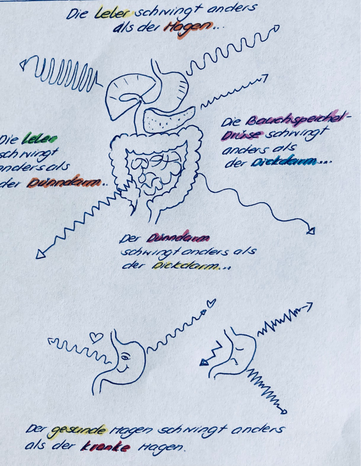 Die Leber schwingt anders
als der Magen...
Die Bauchspeichel-
Drüse schwingt
anders als
der Dickdarm...
Die Leber
schwingt
anders als
der Dünndarm...
Der Dünndarm
schwingt anders als
der Dickdarm...
Der gesunde Magen schwingt anders
als der kranke Magen.